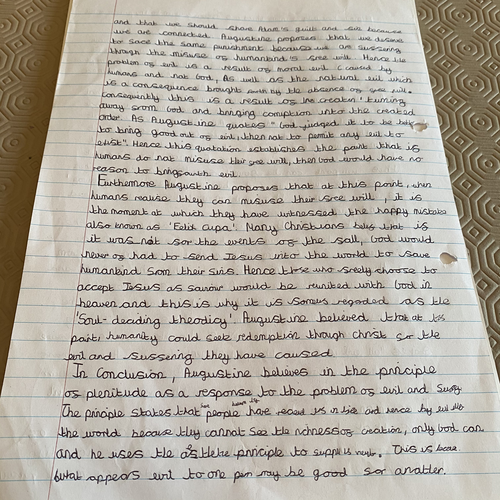 and that we should share Adam's guilt and sin because
we are connected. Augustine proposes that we deserve
to face the same punishment because we are suffering
through the misuse of humankind's free will. Hence the
problem of evil is a result of moral evil (caused by
humans and not God, As well as the natural evil which
is a consequence brought by the absence of free will.
Consequently this is a result of the creation turning
away from God and bringing corruption into the created
order. As Augustine quotes "God judged it to be better
to bring good out of evil, then not to permit any evil to
exist". Hence this quotation establishes the point that is
humans do not misuse their free will, then God would have no
reason to bring forth evil.
Furthermore Augustine proposes that at this point, when
humans realise they can misuse their free will, it is
the moment at which they have witnessed the happy mistake
also known as 'Felix Culpa'. Many Christians that is
it was not for the events of the fall, God would
never of had to send Jesus into the world to save
humankind from their sins. Hence those who freely choose to
accept Jesus as saviour would be reunited with God in
heaven and this is why it is regarded as the
'Soul-deciding theodicy'. Augustine believed that at this
point humanity could seek redemption through Christ for the
evil and suffering they have caused.
In Conclusion, Augustine believes in the principle
of plenitude as a response to the problem of evil and
The principle states that people have in life and hence
the world because they cannot see the richness of creation, only God can.
and he uses the principle to support is This is
what appears evil to one person may be good for another.